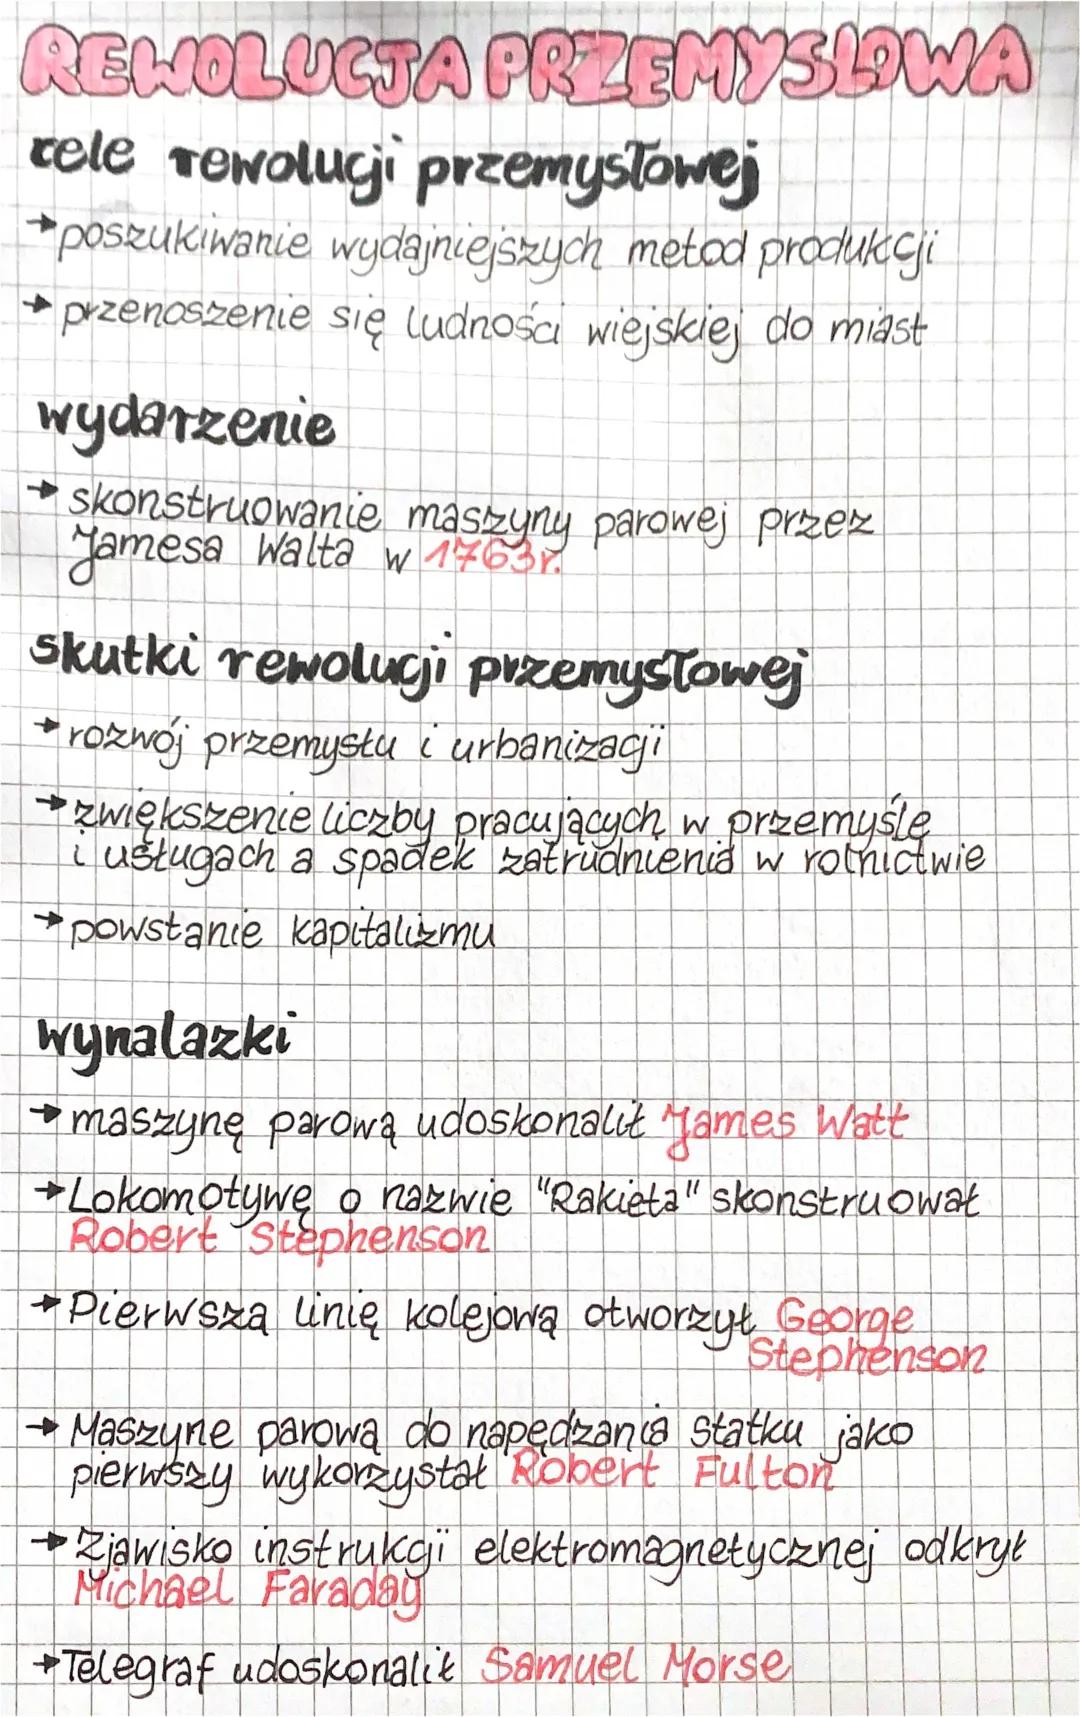 REWOLUCJA PRZEMYSŁOWA
cele rewolucji przemysłowej
→ poszukiwanie wydajniejszych metod produkcji
→ przenoszenie się ludności wiejskiej do miast
wydarzenie
→ skonstruowanie maszyny parowej przez
Jamesa Walta w 1763r.
skutki rewolucji przemysłowej
→ rozwój przemysłu i urbanizacji
→ zwiększenie liczby pracujących w przemyśle
i usługach a spadek zatrudnienia w rolnictwie
→ powstanie kapitalizmu
wynalazki
→ maszynę parową udoskonalił James Watt
→ Lokomotywę o nazwie "Rakieta" skonstruował
Robert Stephenson
→ Pierwszą linię kolejową otworzył George
Stephenson
→ Maszynę parową do napędzania statku jako
pierwszy wykorzystał Robert Fulton
→ Zjawisko instrukcji elektromagnetycznej odkrył
Michael Faraday
→ Telegraf udoskonalił Samuel Morse